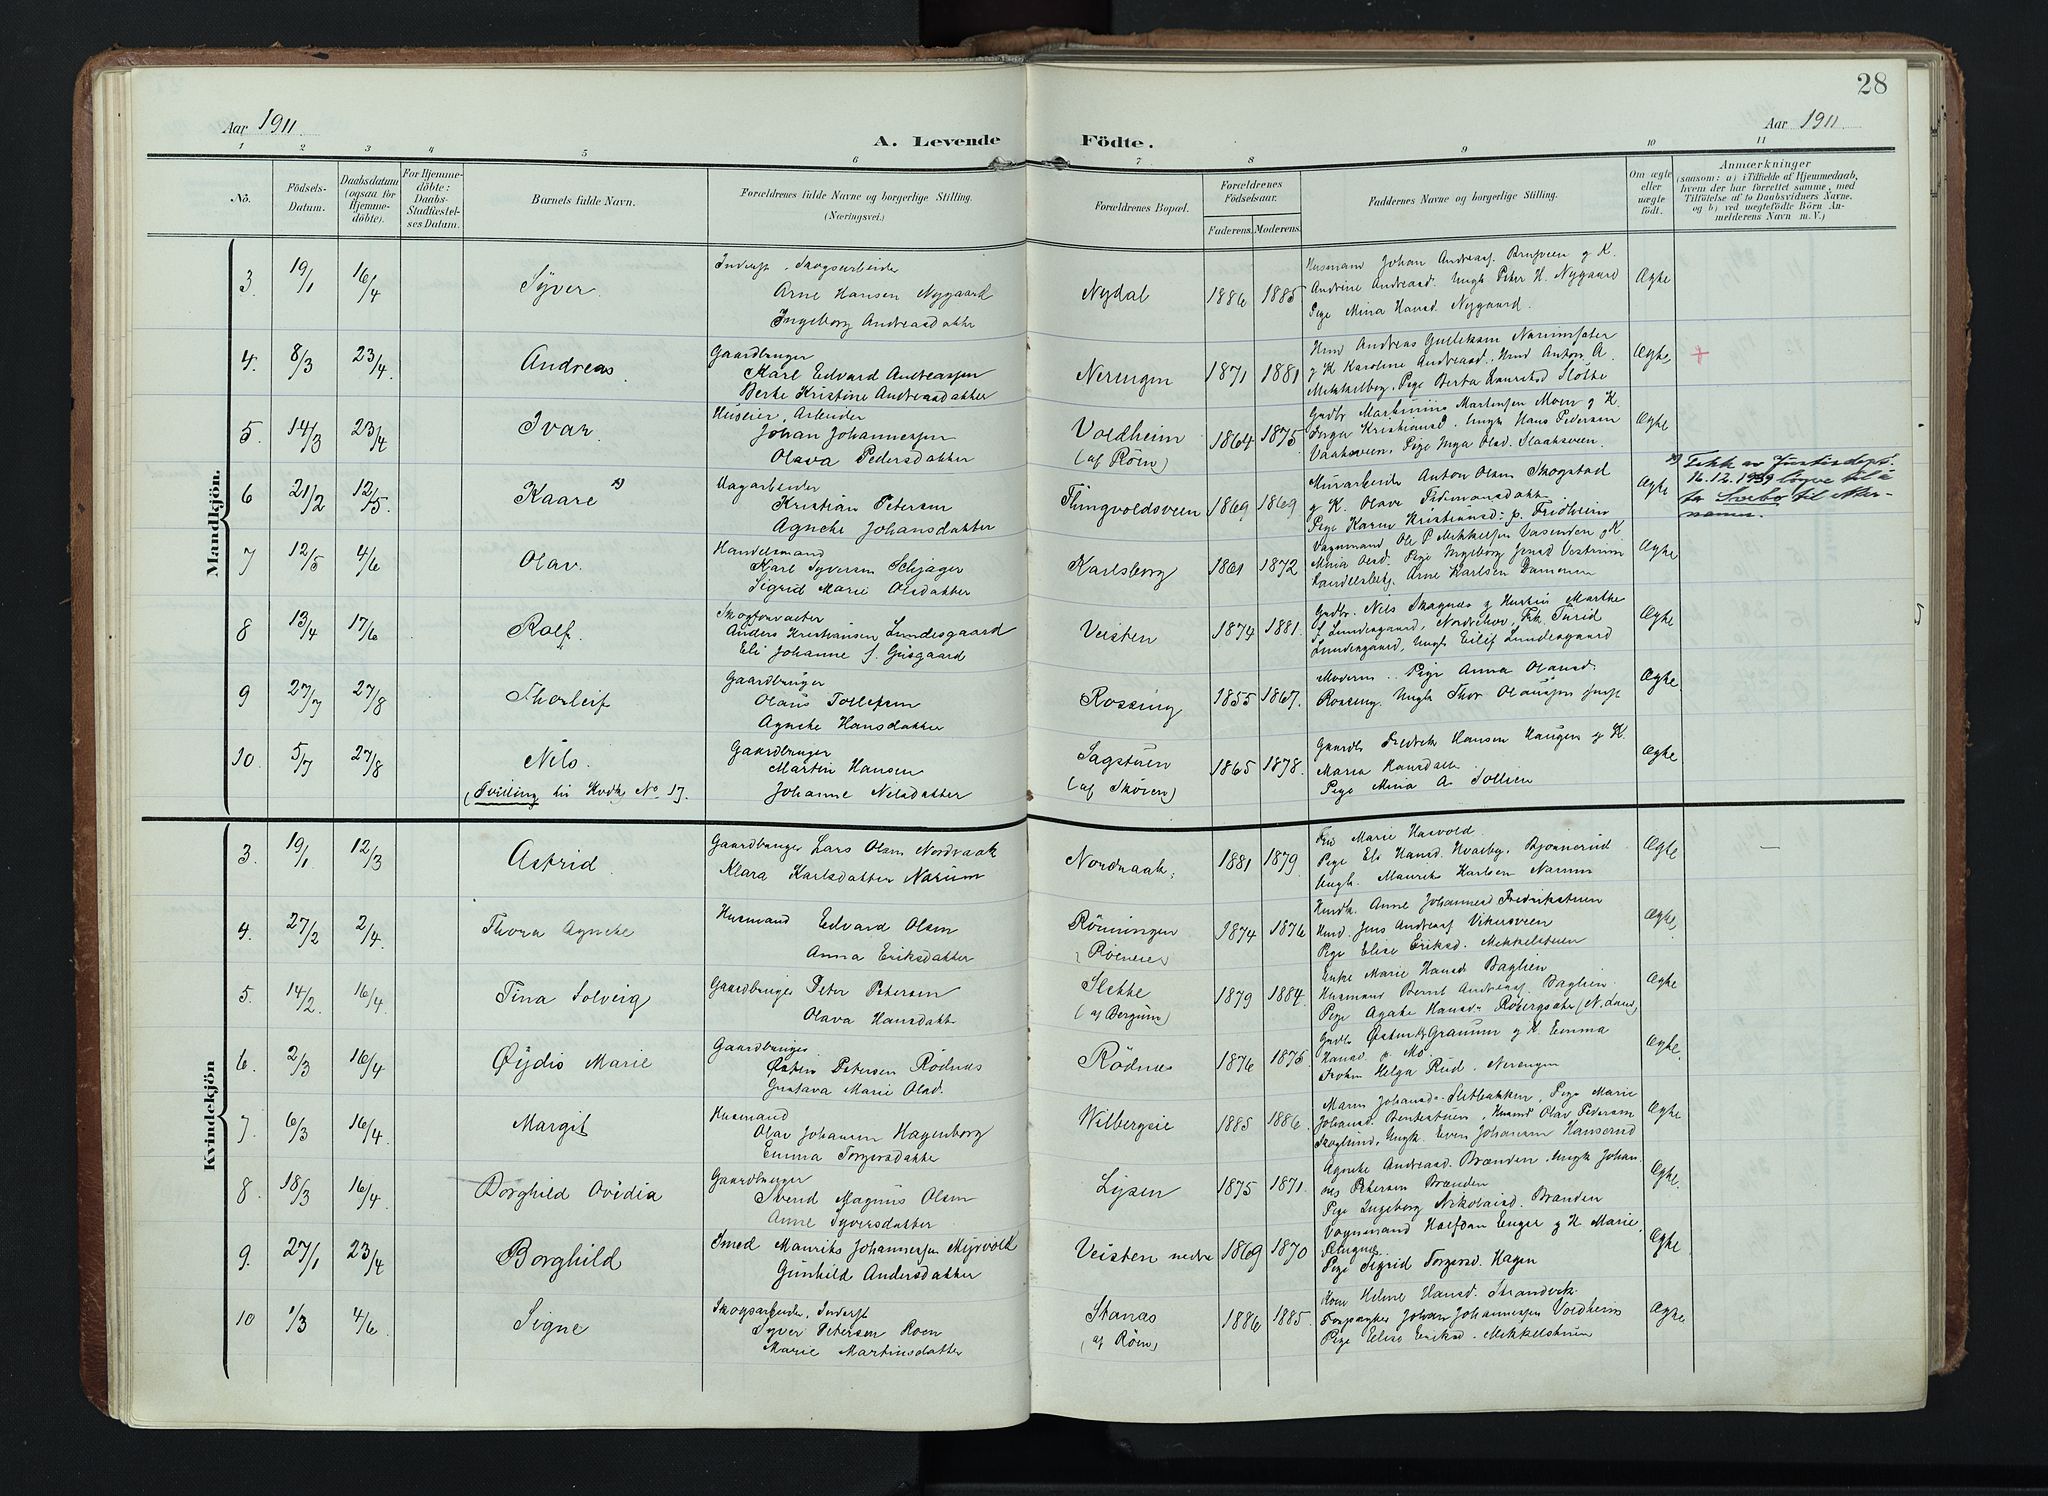 28
Aar 1911.
A. Levende Födte.
Aar 1911.
1 2 3 4 5 6 7 8 9 10 11
No.
Födsels-Datum.
Daabsdatum (ogsaa for Hjemmedöbte).
For Hjemmedöbte: Daabs-Stadfæstelses Datum.
Barnets fulde Navn.
Forældrenes fulde Navne og borgerlige Stilling.
(Næringsvei.)
Forældrenes Bopæl.
Forældrenes Födselsaar.
Faderens. Moderens.
Faddernes Navne og borgerlige Stilling.
Om ægte eller uægte födt.
Anmærkninger
(saasom: a) i Tilfælde af Hjemmedaab, hvem der har forrettet samme, med Tilföielse af to Daabsvidners Navne, og b) ved uægtefödte Börn Anmelderens Navn m. V.)
Mandkjön.
3. 19/1 16/4 Syver.
Inderst, Skogsarbeider
Arne Hansen Nygaard
Ingeborg Andreasdatter
Nydal 1886 1885
Husmand Johan Andreas. g K.
Andrine Andreasd. Ungk Peter H. Nygaard
Pige Mina Hansd. Nygaard.
Ægte
4. 8/3 23/4. Andreas.
Gaardbruger
Karl Edvard Andreassen
Berte Kristine Andreasdatter
Nerengen 1871 1881
Andreas Gulliksen
g K Karoline Andreasd. Anton A.
Mekkelborg, Pige Berta Slotte
Ægte +
5. 14/3 23/4 Ivar.
Huseier, Arbeider
Johan Johannessen
Olava Pedersdatter
Voldheim
(af Röen) 1864 1875
Gndbr Martinius Martinsen Moen g K.
Inga Kristiansd. Ungk Hans Pedersen
Pige Inga Olsd. Slaaksveen.
Ægte
6 21/2 12/5. Kaare x)
Kristian Petersen
Agnethe Johansdatter
Thingvoldsveen 1869 1869
Anton Olsen Skogstad
g K. Olave Simensdatter
Pige Karen Kristiansd. p. Fridheim
Ægte
x) Fekk av Justisdept.
16.12.1939 løyve til å
ta Svebo til etternamn.
7 12/5 4/6 Olav.
Handelsmand
Karl Syversen Schjager
Sigrid Marie Olsdatter
Karlsborg 1861 1872
Ole P Mekkelsen g K
Mina Olsd. Pige Ingeborg Vestrum
Arne Karlsen
Ægte
8 13/4 17/6 Rolf.
Skogforvalter
Anders Kristiansen Lundesgaard
Eli Johanne f. Gusgaard
Veisten 1874 1881.
Gndbr. Nils Skagnæs g Hustru Marthe
f Lundesgaard, Nordrehov, Frk. Turid
Lundesgaard, Ungk Eilif Lundesgaard
Ægte
9 27/7 27/8 Thorleif
Gaardbruger
Olaus Tollefsen
Agnethe Hansdatter
Rossing 1855 1867.
Moderen, Pige Anna Olausd.
Rossing, Ungk Thor Olaussen
Ægte.
10. 5/7 27/8 Nils.
(Tvilling til Kvdk No 17.
Gaardbruger
Martin Hansen
Johanne Nilsdatter
Sagstuen
(af Skören) 1865 1878.
Gaardb. Fredrik Hansen Haugen g K.
Maria Hansdatt.
Pige Mina A. Sollien
Ægte
Kvindekjön
3. 19/1 12/3 Astrid.
Gaardbruger Lars Olsen Nordraak
Klara Karlsdatter Narum
Nordraak. 1881 1879.
Fru Marie Hasvold
Pige Eli Hansd. Hvalby, Bjonnerud
Ungk. Mauritz Karlsen Narum
Ægte —
4. 27/2 2/4. Thora Agnethe
Husmand Edvard Olsen
Anna Eriksdatter
Rönningen
(Roeneie) 1874 1876
Anne Johannesd Fredrikstuen
Jens Andreas. Vikersveen
Pige Elise Eriksd. Mekkelstuen
Ægte.
5. 14/2. 16/4. Tina Solveig
Gaardbruger Peter Petersen
Olava Hansdatter
Slette
(af Bergum) 1879 1884.
Enke Marie Hansd Baglien
Husmand Bernt Andreas. Baglien.
Pige Agathe Hansd.
Ægte
6. 2/3 16/4 Øydis Marie
Gaardbruger.
Østen Petersen Rödnæs
Gustava Marie Olsd.
Rödnæs 1876 1875
Granum g K. Emma
Hansd p. Mo
Helga Rud, Nerengen
Ægte.
7. 6/3 16/4. Margit
Husmand
Olav Johansen Hagenborg
Emma Torgersdatter
Wilbergseie 1885 1886.
Maren Johansd. Sletbakken, Pige Marie
Johansd. Bentestuen, Husmd Olav Pedersen
Skoglund, Ungk. Even Johansen Hanserud
Ægte
8. 18/3 16/4. Borghild Ovidia
Gaardbruger
Svend Magnus Olsen
Anne Syversdatter
Lysen 1875 1871.
Agnethe Andreasd. Brænden, Ungk Johannes Petersen Brænden
Pige Ingeborg Nikolaisd. Brænden
Ægte.
9. 27/1 23/4 Borghild
Smed Mauritz Johannessen Myrvold
Gunhild Andersdatter
Veisten nedre 1869 1870
Vognmand Halfdan Enger g K Marie,
Pige Sigrid Torgersd. Hagen
Ægte
10 1/3 4/6. Signe
Skogsarbeider, Inderst
Syver Petersen Roen
Marie Martinsdatter
Stanas
(af Röen) 1886 1885.
Kone Helene Hansd. Strandvik
Forpagter Johan Johannessen Voldheim
Pige Elise Eriksd. Mekkelstuen
Ægte